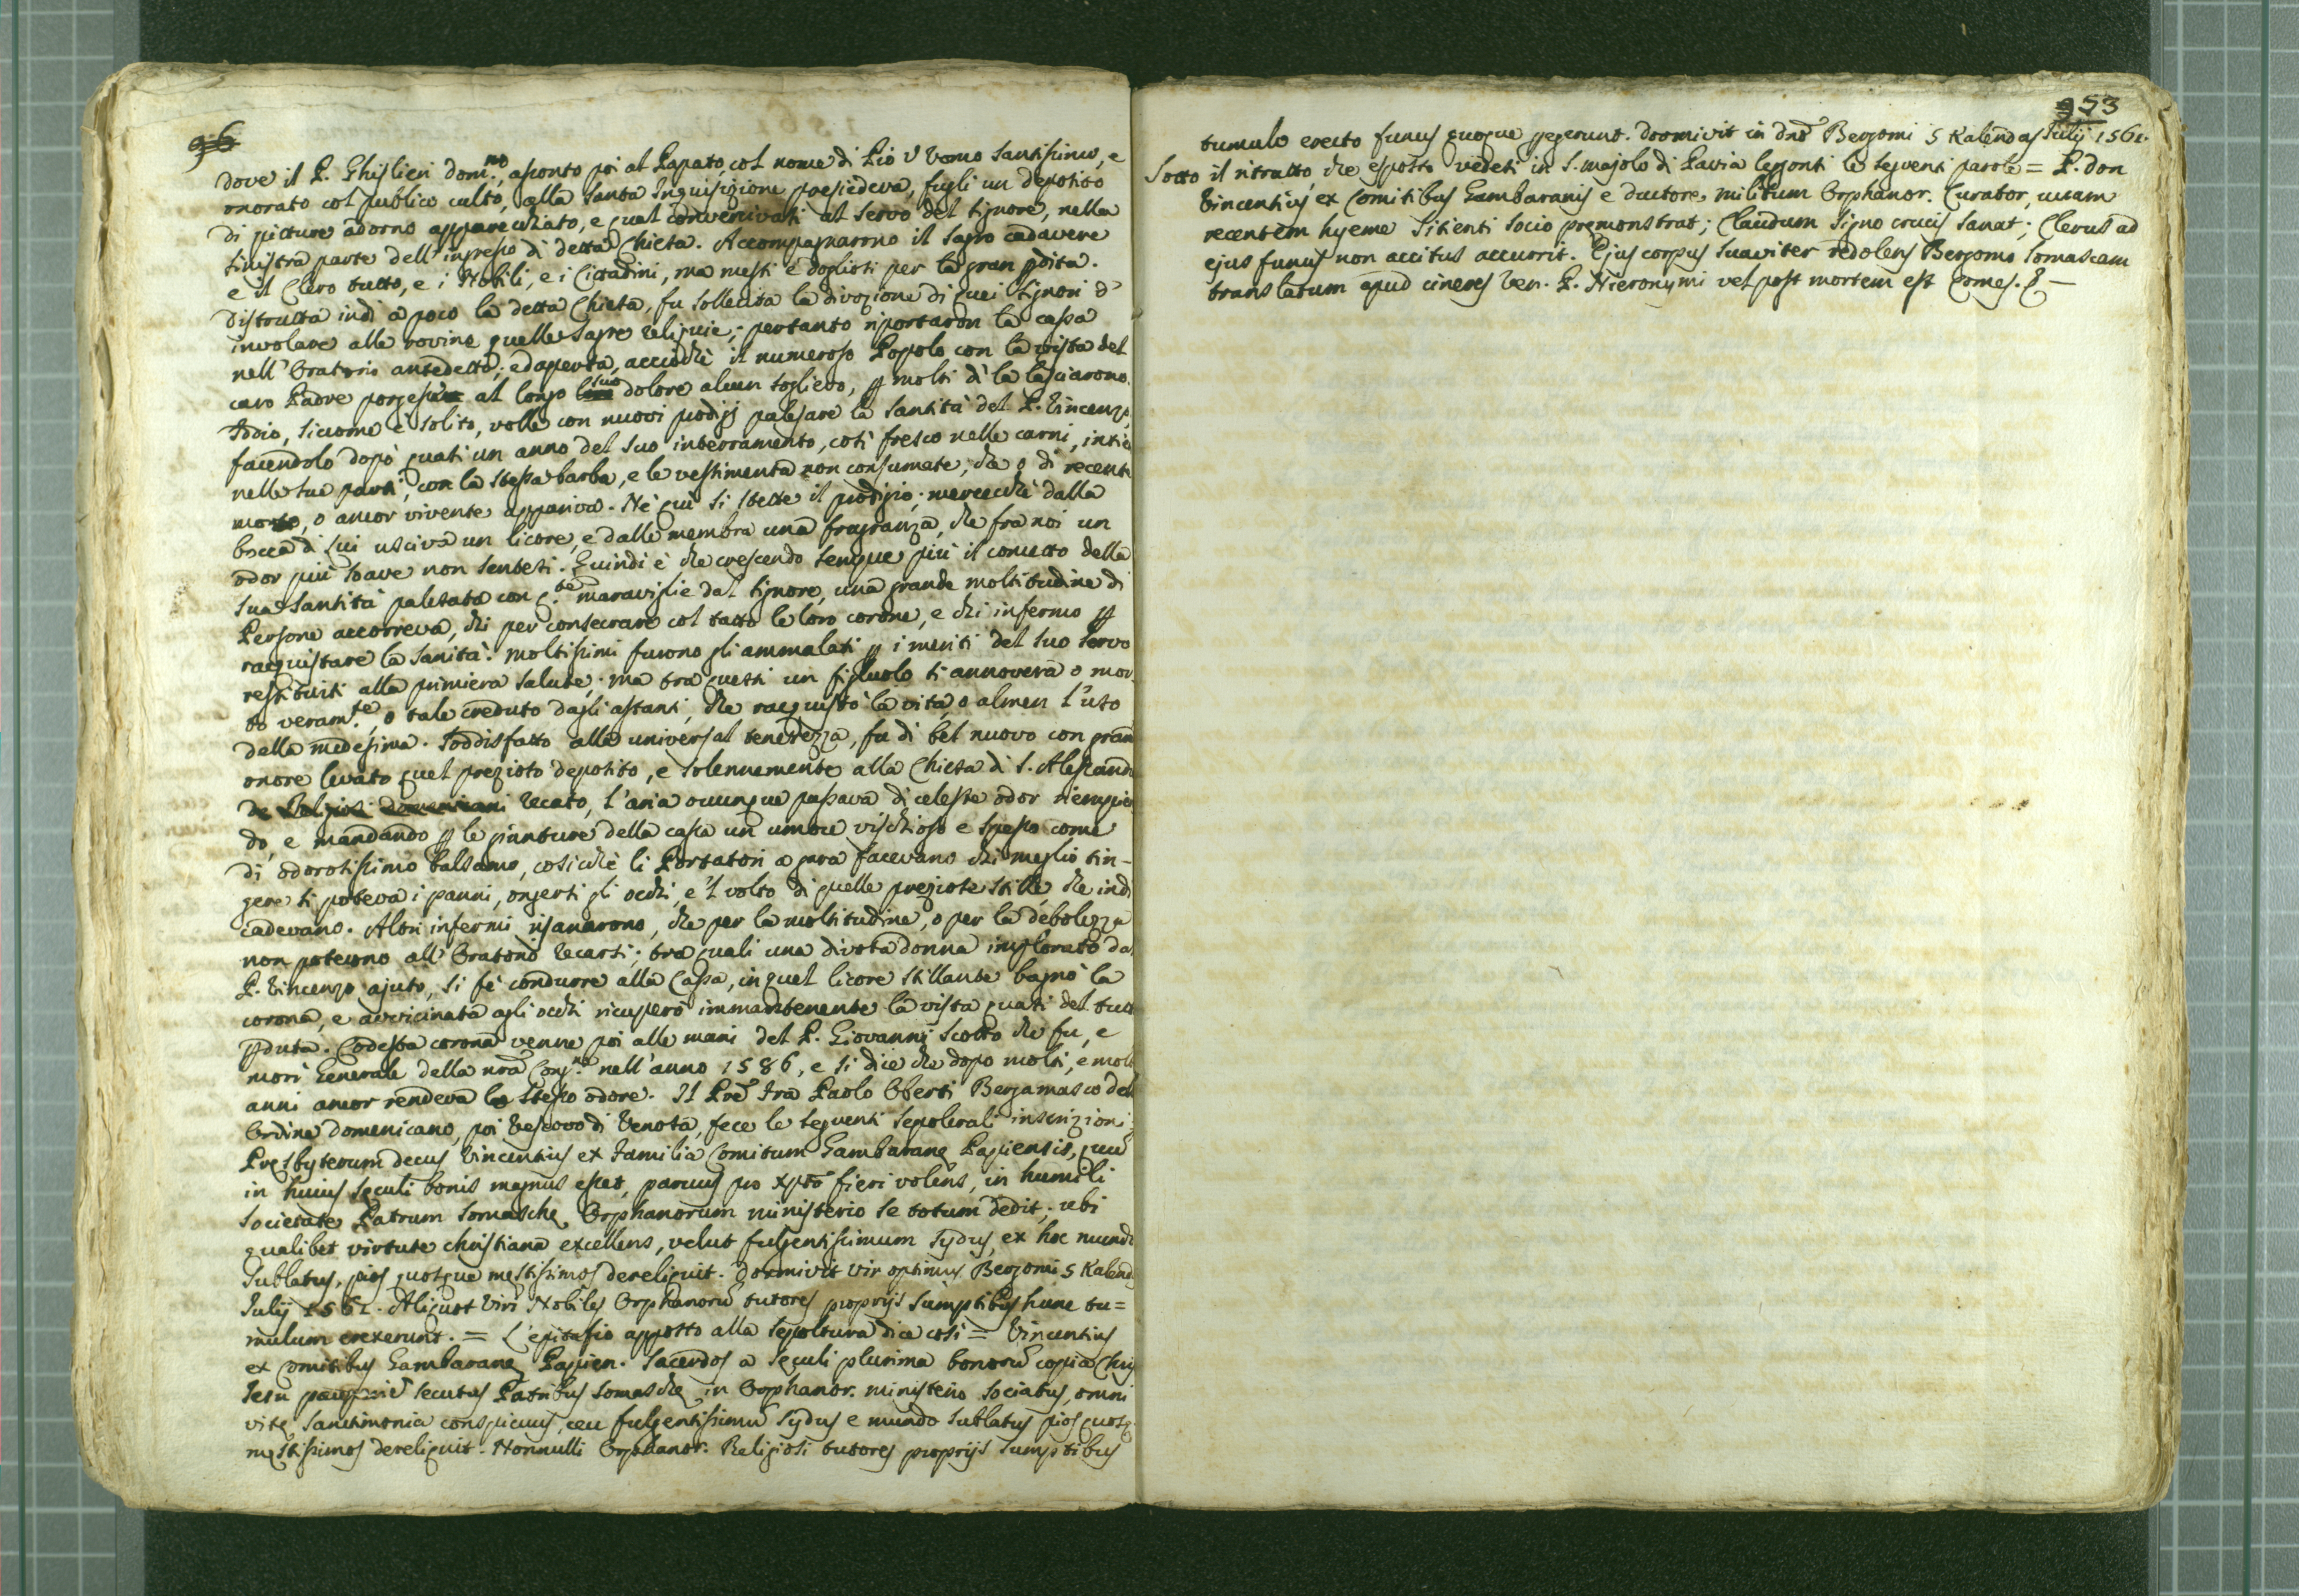 96
dove il P. Ghislieri dom.no, asonto poi al Papato, col nome di Pio V Uomo santissimo, e
onorato col publico culto, alla Santa Inquisizione presiedeva, fugli un deposito
di pitture adorno apparecchiato, e qual convenivasi al servo del Signore, nella
sinistra parte dell'ingresso di detta Chiesa. Accompagnarono il sagro cadavere
e il Clero tutto, e i Nobili, e i Cittadini, ma mesti e dogliosi per la gran pdita.
Distrutta indi a poco la detta Chiesa, fu sollecita la divozione di quei Signori d'
involare alle rovine quelle sagre reliquie; pertanto riportaron la cassa
nell'Oratorio antedetto; ed aperta, acciochè il numeroso Popolo con la vista del
caro Padre porgesse al longo suo dolore alcun soglievo, p molti dì la lasciarono.
Iddio, siccome è solito, volle con nuovi prodigj palesare la santità del P. Vincenzo,
facendolo dopo quasi un anno del suo interramento, così fresco nelle carni, intie
nelle sue parti, con la stessa barba, e le vestimenta non consumate, che o di recente
morto, o ancor vivente appariva. Nè quì si stette il prodigio; mercechè dalla
bocca di lui usciva un licore, e dalle membra una fragranza, che fra noi un
odor più soave non sentesi. Quindi è che crescendo sempre più il concetto della
sua santità palesata con q.te maraviglie dal Signore, una grande moltitudine di
Persone accorreva, chi per consecrare col tatto le loro corone, e chi infermo p
racquistare la sanità. Moltissimi furono gli ammalati p i meriti del suo servo
restituiti alla primiera salute; ma tra questi un figliuolo si annovera o mor
to veram.te, o tale creduto dagli astanti, che racquistò la vita, o almen l'uso
della medesima. Soddisfatto alla universal tenerezza, fu di bel nuovo con gran
onore levato quel prezioso deposito, e solennemente alla Chiesa di S. Alessandro
de Religiosi domenicani recato, l'aria ovunque passava di celeste odor riempien
do, e mandando p le giunture della cassa un umore vischioso e spesso come
di odorosissimo balsamo, cosichè li Portatori a gara facevano chi meglio tin-
gere si poteva i panni, ongersi gli occhi, e 'l volto di quelle preziose stille, che indi
cadevano. Altri infermi risanarono, che per la moltitudine, o per la debolezza
non poterono all'Oratorio recarsi; tra quali una divota donna implorato dal
P. Vincenzo ajuto, si fè condurre alla Cassa, in quel licore stillante bagnò la
corona, e avvicinata agli occhi ricuperò immantenente la vista quasi del tutto
pduta. Codesta corona venne poi alle mani del P. Giovanni Scotto che fu, e
morì Generale della nra Cong.ne nell'anno 1586, e si dice che dopo molti, e molti
anni ancor rendeva lo stesso odore. Il Pre Fra Paolo Oberti Bergamasco dell
Ordine Domenicano, poi Vescovo di Venosa, fece le seguenti sepolcrali inscrizioni
Presbyterum decus Vincentius ex Familia Comitum Gambarane Papiensis, quu
in huius seculi bonis magnus esset, parvus pro Xpto fieri volens, in humili
societate Patrum Somasche Orphanorum ministerio se totum dedit; ubi
qualibet virtute christiana excellens, velut fulgentissimum sydus, ex hoc mundo
sublatus, pios quosque mestissimos dereliquit. Dormivit vir optimus Bergomi 5 Kalend
Julij 1561. Aliquot Viri Nobiles Orphanoru tutores proprijs sumptibus hunc tu=
mulum erexerunt. = L'epitafio apposto alla sepoltura dice così = Vincentius
ex Comitibus Gambarane Papien. Sacerdos a seculi plurima bonoru copia Chri
Jesu secutus Patribus Somasche in Orphanor. ministerio sociatus, omni
vite sanctimonia conspicuus, ceu fulgentissimu sydus e mundo sublatus pios quosq
mestissimos dereliquit. Nonnulli Orphanor. Religiosi tutores proprijs sumptibus
953
tumulo erecto funus quoque pegerunt. Dormivit in Dno Bergomi 5 Kalendas Julij 1561.
Sotto il ritratto, che esposto vedesi in S. Majolo di Pavia leggonsi le seguenti parole = P. Don
Vincentius ex Comitibus Gambaranis e ductore militum Orphanor. Curator, uvam
recentem hyeme sitienti socio premonstrat; Claudum signo crucis sanat; Clerus ad
ejus funus non accitus accurrit. Ejus corpus suaviter redolens Bergomo Somascam
translatum apud cineres Ven. P. Hieronymi vel post mortem est Comes. &—